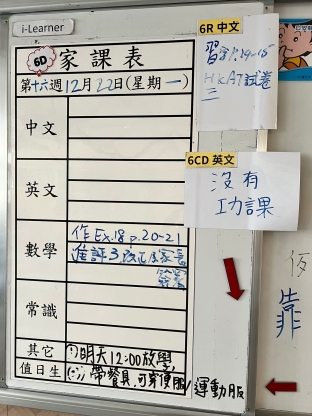 i-Learner
6D 家課表
第十六週12月22日(星期一)
中文
英文
數學
作 Ex.18 p.20-21
進評3改正及家長
簽署
常識
其它
(1)明天12:00放學
值日生
帶餐具,可穿便服/運動服
6R 中文
習字P.14-15
HKAT試卷
三
6CD 英文
沒有
功課
靠